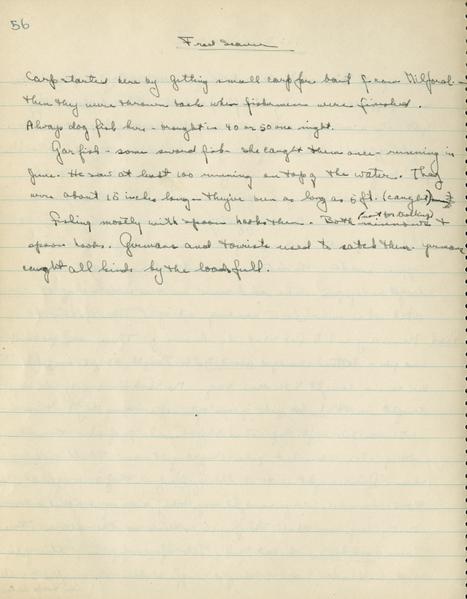 56
Fred Seaver
Carp started here by getting small carp for bait from Milford -
then they were thrown back when fishermen were finished.
Always dog fish here - brought in 40 or 50 one night.
Garfish - some sword fish - She caught them once - running in
June. He saw at least 100 running on top of the water. They
were about 18 inches long - they've been as long as 6 ft. (caught)
Fishing mostly with spoon hooks then. Both (not for trolling) +
spoon hooks. Germans and tourists used to catch them. German
caught all kinds by the boatsfull.